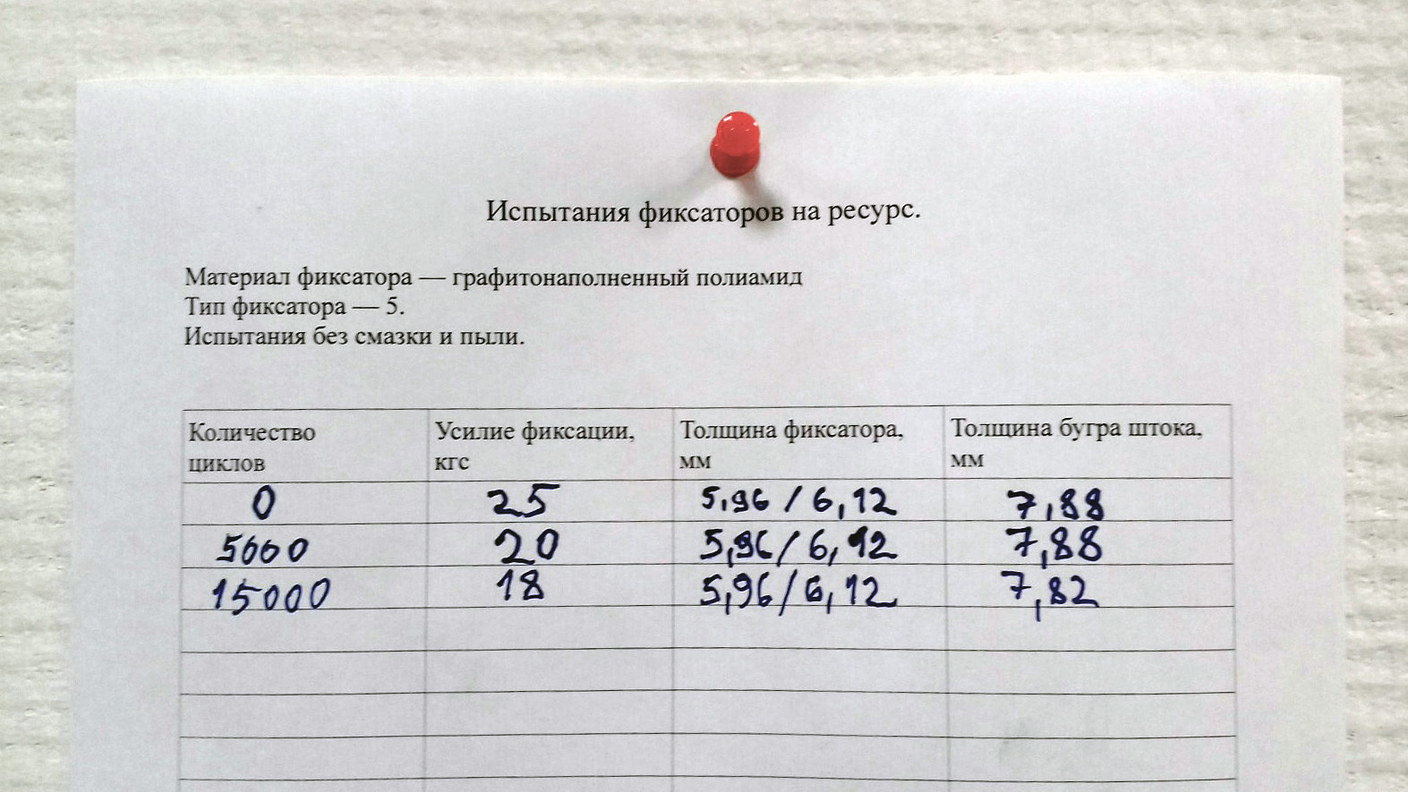 Испытания фиксаторов на ресурс.
Материал фиксатора — графитонаполненный полиамид
Тип фиксатора — 5.
Испытания без смазки и пыли.
Количество циклов Усилие фиксации, кгс Толщина фиксатора, мм Толщина бугра штока, мм
0 25 5,96 / 6,12 7,88
5000 20 5,96 / 6,12 7,88
15000 18 5,96 / 6,12 7,82